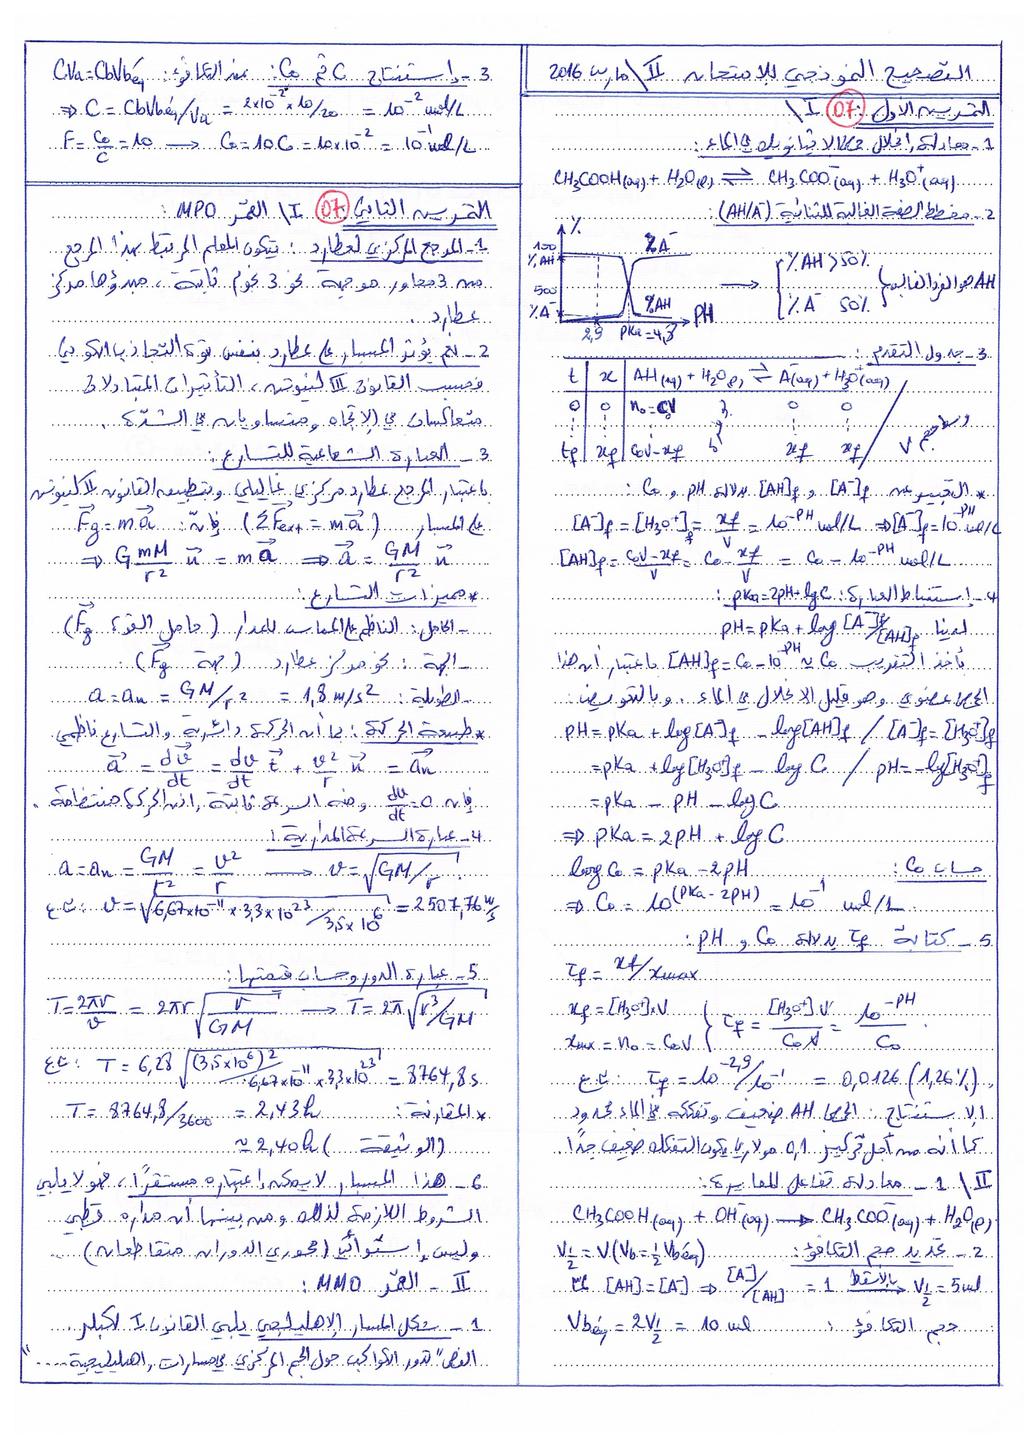 التصحيح النموذجي للامتحان II \ مارس 2016
التمرين الأول 07 : I \
1- معادلة انحلال حمض الإيثانويك في الماء :
CH₃COOH(aq) + H₂O(l) ⇌ CH₃COO⁻(aq) + H₃O⁺(aq)
2- مخطط الصفة الغالبة للثنائية (AH/A⁻) :
%
100
%A⁻
%AH
%AH
%A⁻
PH
2,9
{ %AH > 50%
%A⁻ 50%
AH هو الفرد الغالب
3- جدول التقدم :
t | x | AH(aq) + H₂O(l) ⇌ A⁻(aq) + H₃O⁺(aq)
0 | 0 | n₀ = C₀V | 0 | 0
tf | xf | C₀V - xf | xf | xf
وسط حجم V
* التعبير عن [A⁻]f و [AH]f بدلالة pH و C₀ :
[A⁻]f = [H₃O⁺]f = xf/V = 10^-PH mol/L ⇒ [A⁻]f = 10^-PH mol/L
[AH]f = (C₀V - xf)/V = C₀ - xf/V = C₀ - 10^-PH mol/L
4- استنباط العبارة : pKa = 2pH + log C :
لدينا pH = pKa + log [A⁻]f/[AH]f
نأخذ التقريب [AH]f = C₀ - 10^-PH ≈ C₀ باعتبار أن هذا
الحمض عضوي وهو قليل الانحلال في الماء . وبالتعويض :
pH = pKa + log[A⁻]f - log[AH]f / [A⁻]f = [H₃O⁺]f
= pKa + log[H₃O⁺]f - log C / pH = -log[H₃O⁺]f
= pKa - pH - log C
⇒ pKa = 2pH + log C
حساب C₀ : log C₀ = pKa - 2pH
⇒ C₀ = 10^(pKa - 2pH) = 10⁻¹ mol/L
5- كتابة τf بدلالة C₀ و pH :
τf = xf/xmax
xf = [H₃O⁺]×V
xmax = n₀ = C₀V } τf = [H₃O⁺]V/C₀V = 10^-PH/C₀
ت ع : τf = 10^-2,9/10⁻¹ = 0,0126 (1,26%)
الاستنتاج : الحمض AH ضعيف وتفككه في الماء محدود
كما أنه من أجل تركيز 0,1 مولار يكون التفكك ضعيف جدًا.
II \ 1- معادلة تفاعل المعايرة :
CH₃COOH(aq) + OH⁻(aq) → CH₃COO⁻(aq) + H₂O(l)
2- تحديد حجم التكافؤ : V½ = V(Vb = ½ Vbéq)
[AH] = [A⁻] ⇒ [A⁻]/[AH] = 1 بالإسقاط → V½ = 5 ml
حجم التكافؤ : Vbéq = 2V½ = 10 ml
3- استنتاج C ثم C₀ : عند التكافؤ : CVa = CbVbéq
⇒ C = CbVbéq/Va = 2×10⁻²×10/20 = 10⁻² mol/L
F = C₀/C = 10 → C₀ = 10C = 10×10⁻² = 10⁻¹ mol/L
التمرين الثاني 07 : I \ القمر MPO :
1- المرجع المركزي لعطارد : يتكون المعلم المرتبط بهذا المرجع
من 3 محاور موجهة نحو 3 نجوم ثابتة ، مبدؤها مركز
عطارد .
2- نعم يؤثر المسبار على عطارد بنفس قوة التجاذب الكوني
فحسب القانون III لنيوتن ، التأثيرات المتبادلة
متعاكسان في الاتجاه ومتساويان في الشدّة .
3- العبارة الشعاعية للتسارع :
باعتبار المرجع عطارد مركزي غاليلي وبتطبيق القانون II لنيوتن
على المسبار (ΣFext = ma) فإنّ : Fg = ma
⇒ G mM/r² u = ma ⇒ a = GM/r² u
* مميزات التسارع :
- الحامل : الناظم على المماس للمدار (حامل القوة Fg)
- الجهة : نحو مركز عطارد (جهة Fg) .
- الطويلة : a = an = GM/r² = 1,8 m/s²
* طبيعة الحركة : بما أن الحركة دائرية والتسارع ناظمي
a = dv/dt = dv/dt t + v²/r u = an
فإن dv/dt = 0 ومنه السرعة ثابتة , إذن الحركة منتظمة .
4- عبارة السرعة المدارية :
a = an = GM/r² = v²/r → v = √(GM/r)
ت ع : v = √(6,67×10⁻¹¹×3,3×10²³/3,5×10⁶) = 2507,76 m/s
5- عبارة الدور وحساب قيمتها :
T = 2πr/v = 2πr √(r/GM) → T = 2π √(r³/GM)
ت ع : T = 6,28 √((3,5×10⁶)²/6,67×10⁻¹¹×3,3×10²³) = 8764,8 s
* المقارنة : T = 8764,8/3600 = 2,43 h
≈ 2,40 h (الوثيقة)
6- هذا المسبار لا يمكن اعتباره مستقرًا ، فهو لا يلبي
الشروط اللازمة لذلك ومن بينها أن مداره قطبي
وليس استوائي (محوري الدوران متقاطعان) .
II - القمر MMO :
1- شكل المسار الإهليلجي يلبي القانون I لكبلر .
النص "تدور الكواكب حول الجرم المركزي في مسارات إهليلجية ..."